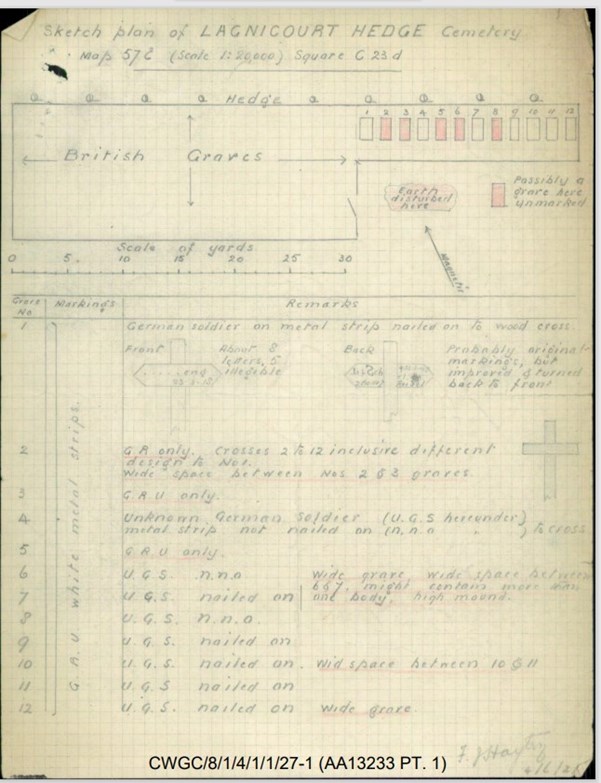 Sketch plan of LAGNICOURT HEDGE Cemetery
Map 57C (Scale 1:20,000) Square C 23 d
Hedge
1 2 3 4 5 6 7 8 9 10 11 12
British Graves
Earth
disturbed
here
Possibly a
grave here
unmarked
Magnetic
Scale of yards
0 5. 10 15 20 25 30
Cross
No
Markings
Remarks
G.R.U white metal strips.
1 German soldier on metal strip nailed on to wood cross.
Front
About 8
letters, 5
illegible
Back
Probably original
markings, but
improved & turned
back to front
2 G.R only. Crosses 2 to 12 inclusive different
design to No1.
Wide space between Nos 2 & 3 graves.
3 G.R.U only.
4 Unknown German Soldier (U.G.S hereunder)
metal strip not nailed on (n.n.o " ) to cross
5 G.R.U only.
6 U.G.S. n.n.o Wide grave, wide space between
7 U.G.S. nailed on 6&7, might contain more than
one body, high mound.
8 U.G.S. n.n.o.
9 U.G.S. nailed on
10 U.G.S. nailed on. Wid space between 10 & 11
11 U.G.S nailed on
12 U.G.S. nailed on Wide grave.
CWGC/8/1/4/1/1/27-1 (AA13233 PT. 1)